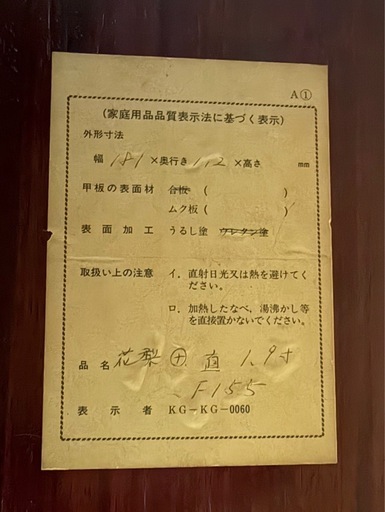 A①
(家庭用品品質表示法に基づく表示)
外形寸法
幅 181 ×奥行き 112 ×高さ mm
甲板の表面材 合板 ( )
ムク板 ( )
表面加工 うるし塗 ウレタン塗
取扱い上の注意 イ. 直射日光又は熱を避けてく
ださい。
ロ. 加熱したなべ、湯沸かし等
を直接置かないでください。
品名 花梨 直 1.9寸
F155
表示者 KG-KG-0060